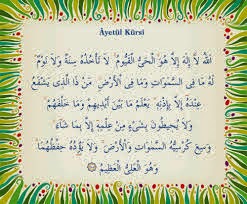 Âyetül Kürsî
اَللّٰهُ لَٓا اِلٰهَ اِلَّا هُوَ الْحَيُّ الْقَيُّومُ لَا تَأْخُذُهُ سِنَةٌ وَلَا نَوْمٌ
لَهُ مَا فِي السَّمٰوَاتِ وَمَا فِي الْاَرْضِ مَنْ ذَا الَّذِي يَشْفَعُ
عِنْدَهُ اِلَّا بِاِذْنِهِ يَعْلَمُ مَا بَيْنَ اَيْدِيهِمْ وَمَا خَلْفَهُمْ
وَلَا يُحِيطُونَ بِشَيْءٍ مِنْ عِلْمِهِ اِلَّا بِمَا شَٓاءَ
وَسِعَ كُرْسِيُّهُ السَّمٰوَاتِ وَالْاَرْضَ وَلَا يَؤُدُهُ حِفْظُهُمَا
وَهُوَ الْعَلِيُّ الْعَظِيمُ